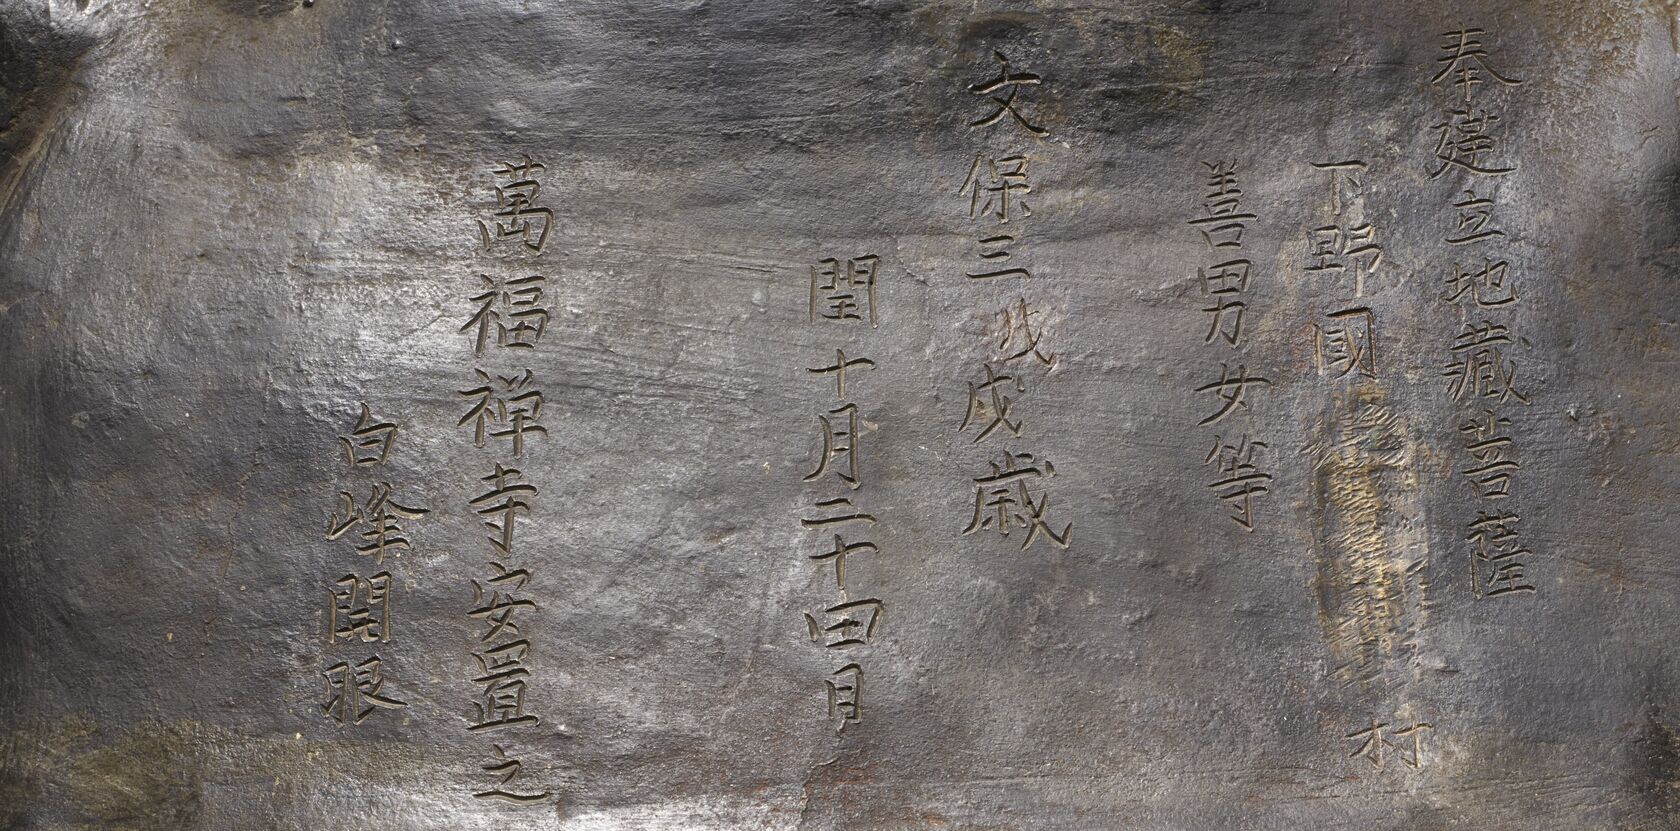 奉建立地藏菩薩
下野國 村
善男女等
文保三戊戌歳
閏十月二十四日
萬福禅寺安置之
白峰開眼